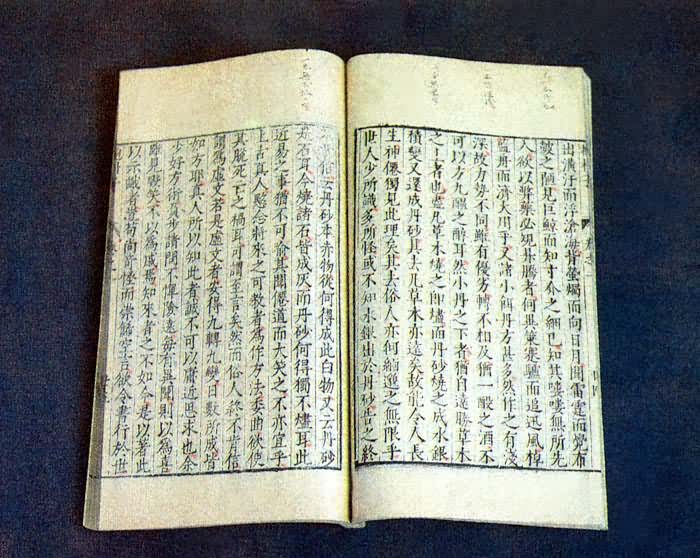 出潢汙而浮滄海背螢燭而向日月聞雷霆而覺布
皷之陋見巨鯨而知寸介之細也知其嘍嘍無所先
入欲以弊藥必規昇騰者何異策蹇驢而追迅風棹
藍舟而濟大川乎又諸小餌丹方甚多然作之有淺
深故力勢不同雖有優劣轉不相及猶一酘之酒不
可以方九醞之醇耳然小丹之下者猶自遠勝草木
之上者也凡草木燒之即燼而丹砂燒之成水銀
積變又還成丹砂其去凡草木亦遠矣故能令人長
生神僊獨見此理矣其去俗人亦何緬邈之無限乎
世人少所識多所怪或不知水銀出於丹砂告之終
不肯信云丹砂本赤物從何得成此白物又云丹砂
是石耳今燒諸石皆成灰而丹砂何得獨爾此
近易之事猶不可喻其聞僊道而大笑之不亦宜乎
上古真人愍念將來之可教者為作方法委曲欲使
其脫死亡之禍耳可謂至言矣然而俗人終不肯信
謂為虛文若是虛文者安得九轉九變日數所成皆
如方耶真人所以知此者誠不可以庸近思求也余
少好方術負步請問不憚險遠每有異聞則以為喜
雖見毀笑不以為戚焉知來者之不如今是以著此
以示識者豈苟尚奇怪而崇飾空言欲令書行於世